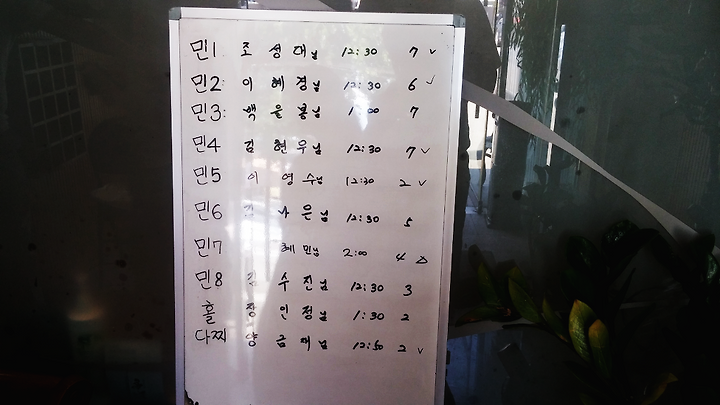 민1. 조성대님 12:30 7 ✓
민2: 이혜경님 12:30 6 ✓
민3: 백은봉님 1:00 7
민4 김현우님 12:30 7 ✓
민5 이영수님 12:30 2 ✓
민6 나은님 12:30 5
민7 혜민님 2:00 4 △
민8 김수진님 12:30 3
홀 장인정님 1:30 2
다찌 양금재님 12:50 2 ✓